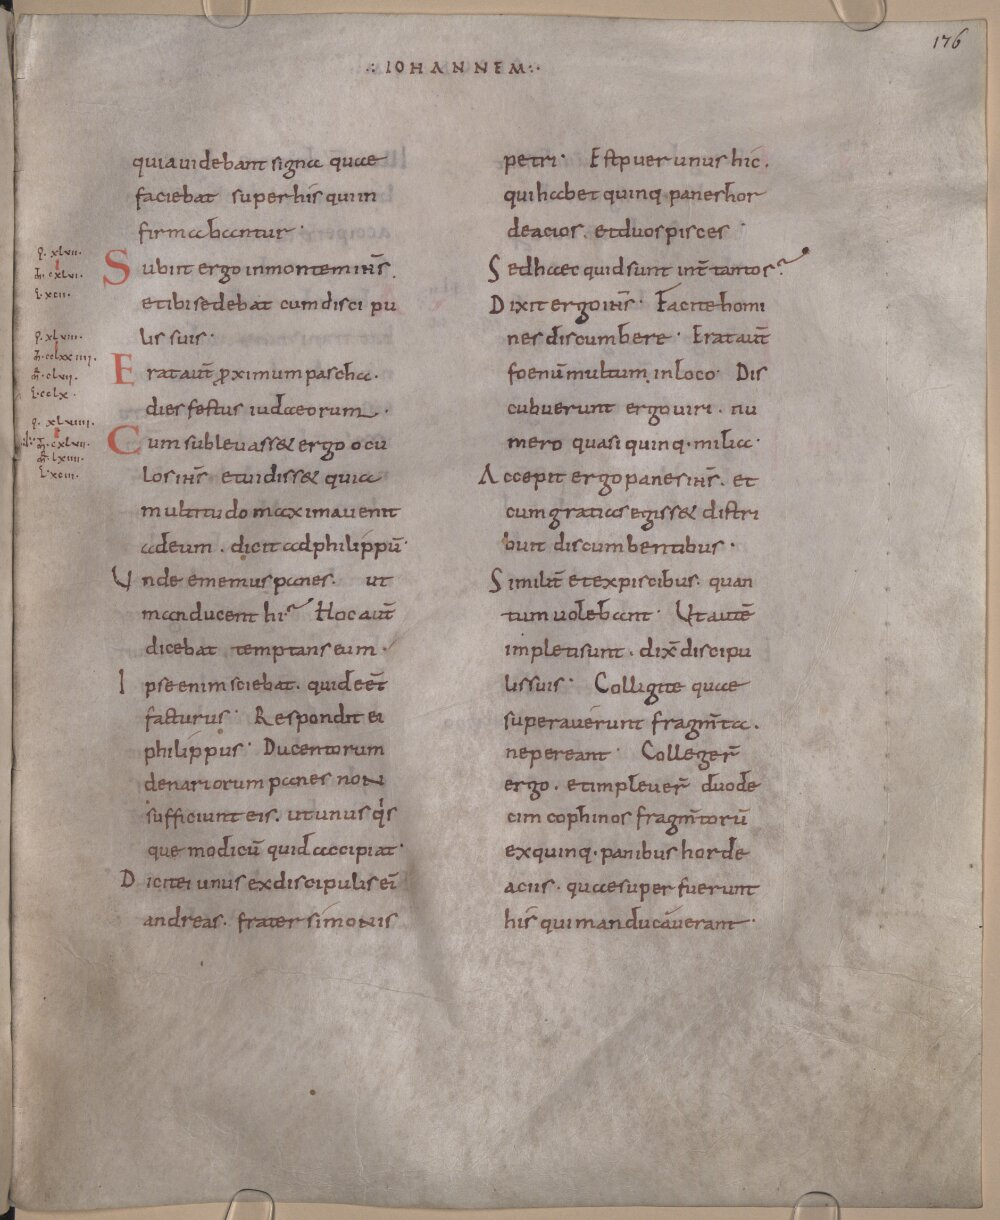 176
∴ IOHANNEM ∴
quia uidebant signa quae
faciebat super his qui in
firmabantur·
Subiit ergo in montem ihs̄.
et ibi sedebat cum discipu
lis suis·
Erat aut̄ ꝓximum pascha·
dies festus iudaeorum·
Cum subleuass& ergo ocu
los ihs̄ et uidiss& quia
multitudo maxima uenit
ad eum. dicit ad philippū·
Unde ememus panes. ut
manducent hi? Hoc aut̄
dicebat temptans eum·
Ipse enim sciebat. quid eēt
facturus· Respondit ei
philippus· Ducentorum
denariorum panes non
sufficiunt eis. ut unus qⁱs
que modicū quid accipiat·
Dicit ei unus ex discipulis ei̅
andreas. frater simonis
petri· Est puer unus hic.
qui habet quinq panes hor
deacios. et duos pisces·
Sed haec quid sunt int̄ tantos?
Dixit ergo ihs̄· Facite homi
nes discumbere· Erat aut̄
foenū multum in loco· Dis
cubuerunt ergo uiri. nu
mero quasi quinq· milia·
Accepit ergo panes ihs̄. et
cum gratias egiss& distri
buit discumbentibus·
Similit̄ et ex piscibus. quan
tum uolebant· Ut autē
impleti sunt. dix̄ discipu
lis suis· Colligite quae
superauerunt fragm̄ta.
ne pereant· Colleger̄
ergo. et impleuer̄ duode
cim cophinos fragm̄torū
ex quinq· panibus horde
aciis. quae superfuerunt
his qui manducauerant·
·xlvii·
m̄·cxlvi·
l·xcii·
·xlviii·
m̄·cclxxiiii·
m̄r·clvii·
l·cclx·
·xlviiii·
m̄·cxlvii·
m̄r·lxiiii·
l·xciii·